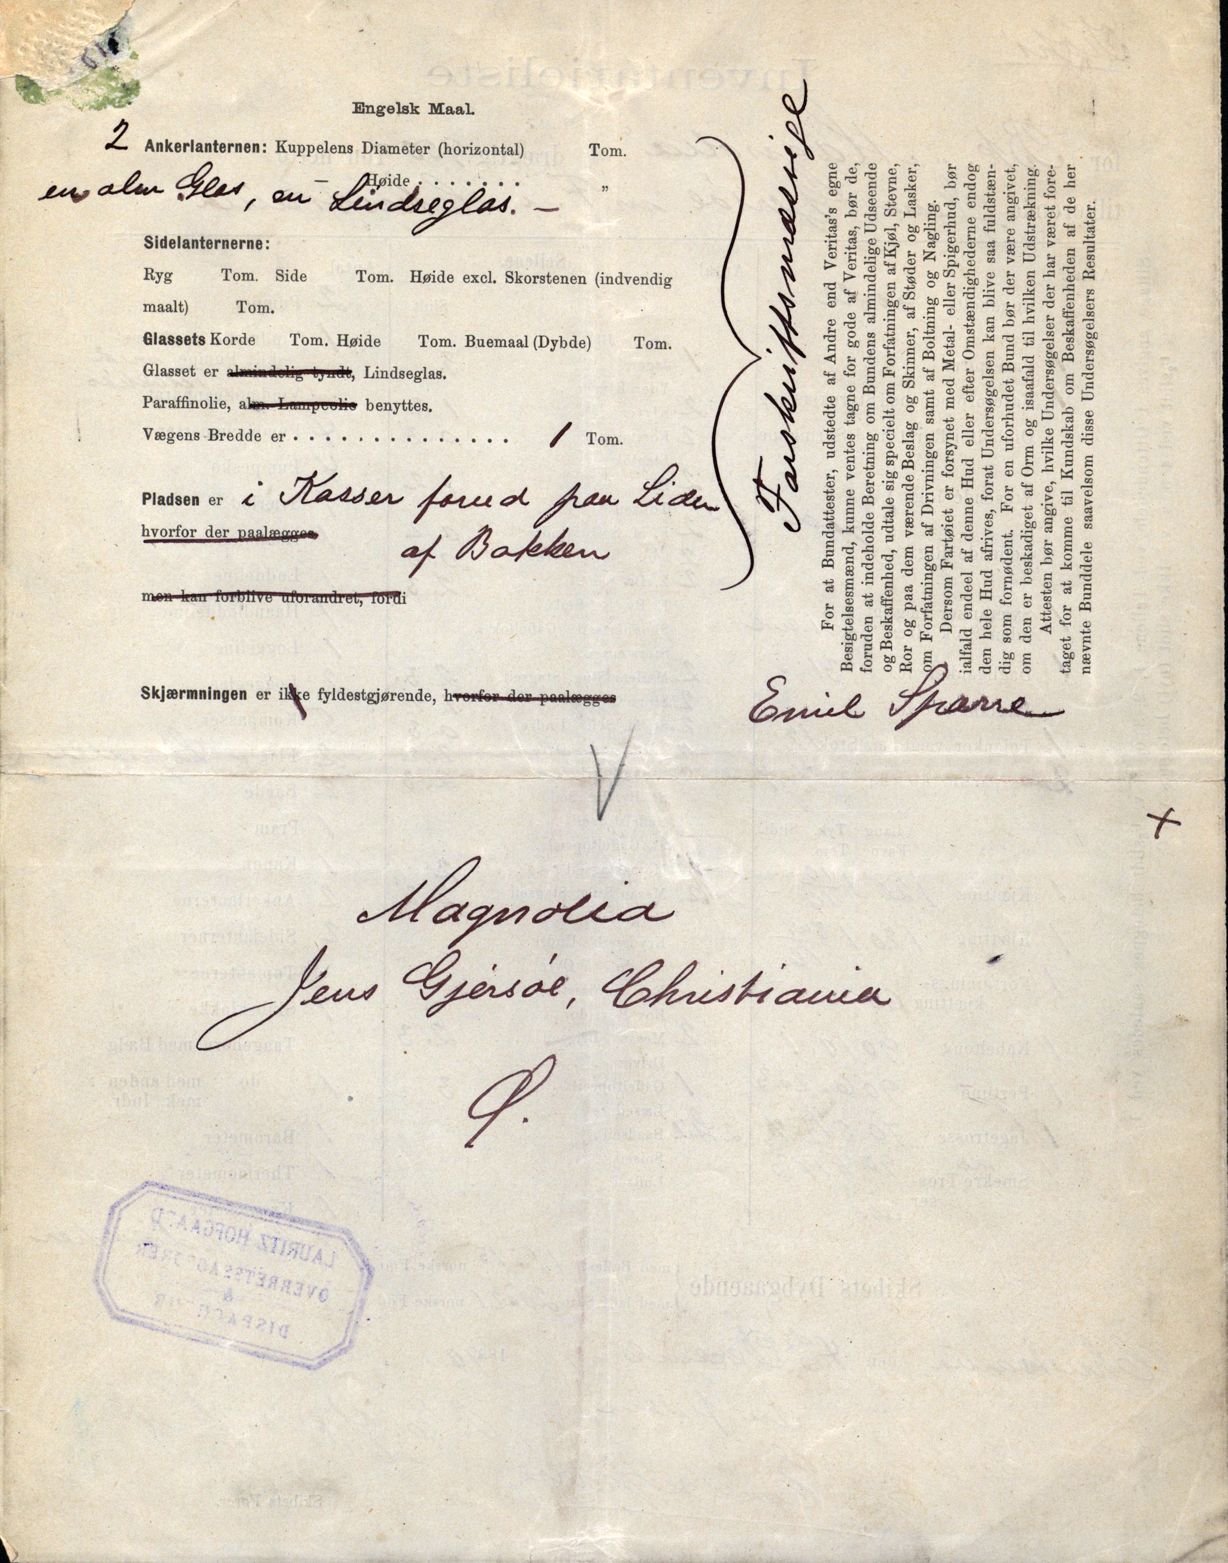 Engelsk Maal.
2 Ankerlanternen: Kuppelens Diameter (horizontal) Tom.
— Høide . . . . . . . "
en alm Glas, en Lindseglas. —
Sidelanternerne:
Ryg Tom. Side Tom. Høide excl. Skorstenen (indvendig
maalt) Tom.
Glassets Korde Tom. Høide Tom. Buemaal (Dybde) Tom.
Glasset er almindelig tyndt, Lindseglas.
Paraffinolie, alm. Lampeolie benyttes.
Vægens Bredde er . . . . . . . . . . . . . . . 1 Tom.
Pladsen er i Kasser forud paa Siden
hvorfor der paalægges
af Bakken
men kan forblive uforandret, fordi
Skjærmningen er ikke fyldestgjørende, hvorfor der paalægges
Forskriftsmæssige
For at Bundattester, udstedte af Andre end Veritas's egne
Besigtelsesmænd, kunne ventes tagne for gode af Veritas, bør de,
foruden at indeholde Beretning om Bundens almindelige Udseende
og Beskaffenhed, udtale sig specielt om Forfatningen af Kjøl, Stevne,
Ror og paa dem værende Beslag og Skinner, af Støder og Lasker,
om Forfatningen af Drivningen samt af Boltning og Nagling.
Dersom Fartøiet er forsynet med Metal- eller Spigerhud, bør
ialfald endeel af denne Hud eller efter Omstændighederne endog
den hele Hud afrives, forat Undersøgelsen kan blive saa fuldstæn-
dig som fornødent. For en uforhudet Bund bør der være angivet,
om den er beskadiget af Orm og isaafald til hvilken Udstrækning.
Attesten bør angive, hvilke Undersøgelser der har været fore-
taget for at komme til Kundskab om Beskaffenheden af de her
nævnte Bunddele saavelsom disse Undersøgelsers Resultater.
Emil Sparre
Magnolia
Jens Gjersøe, Christiania
Ø.
LAURITZ HOFGAARD
OVERRETSSAGFØRER
&
DISPACHØR